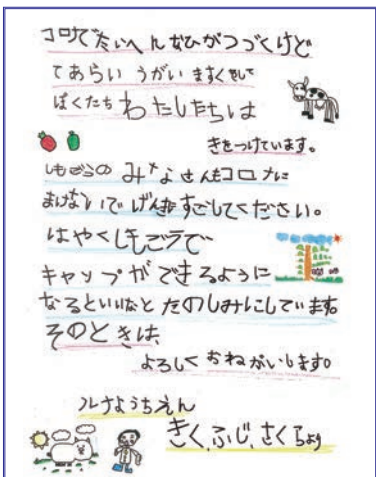 コロナでたいへんなひがつづくけど
てあらい うがい ますくをして
ぼくたち わたしたちは
きをつけています。
しもごうの みなさんもコロナに
まけないで げんきにすごしてください。
はやくしもごうで
キャンプができるように
なるといいなと たのしみにしています。
そのときは、
よろしく おねがいします。
ルナようちえん
きく、ふじ、さくらより